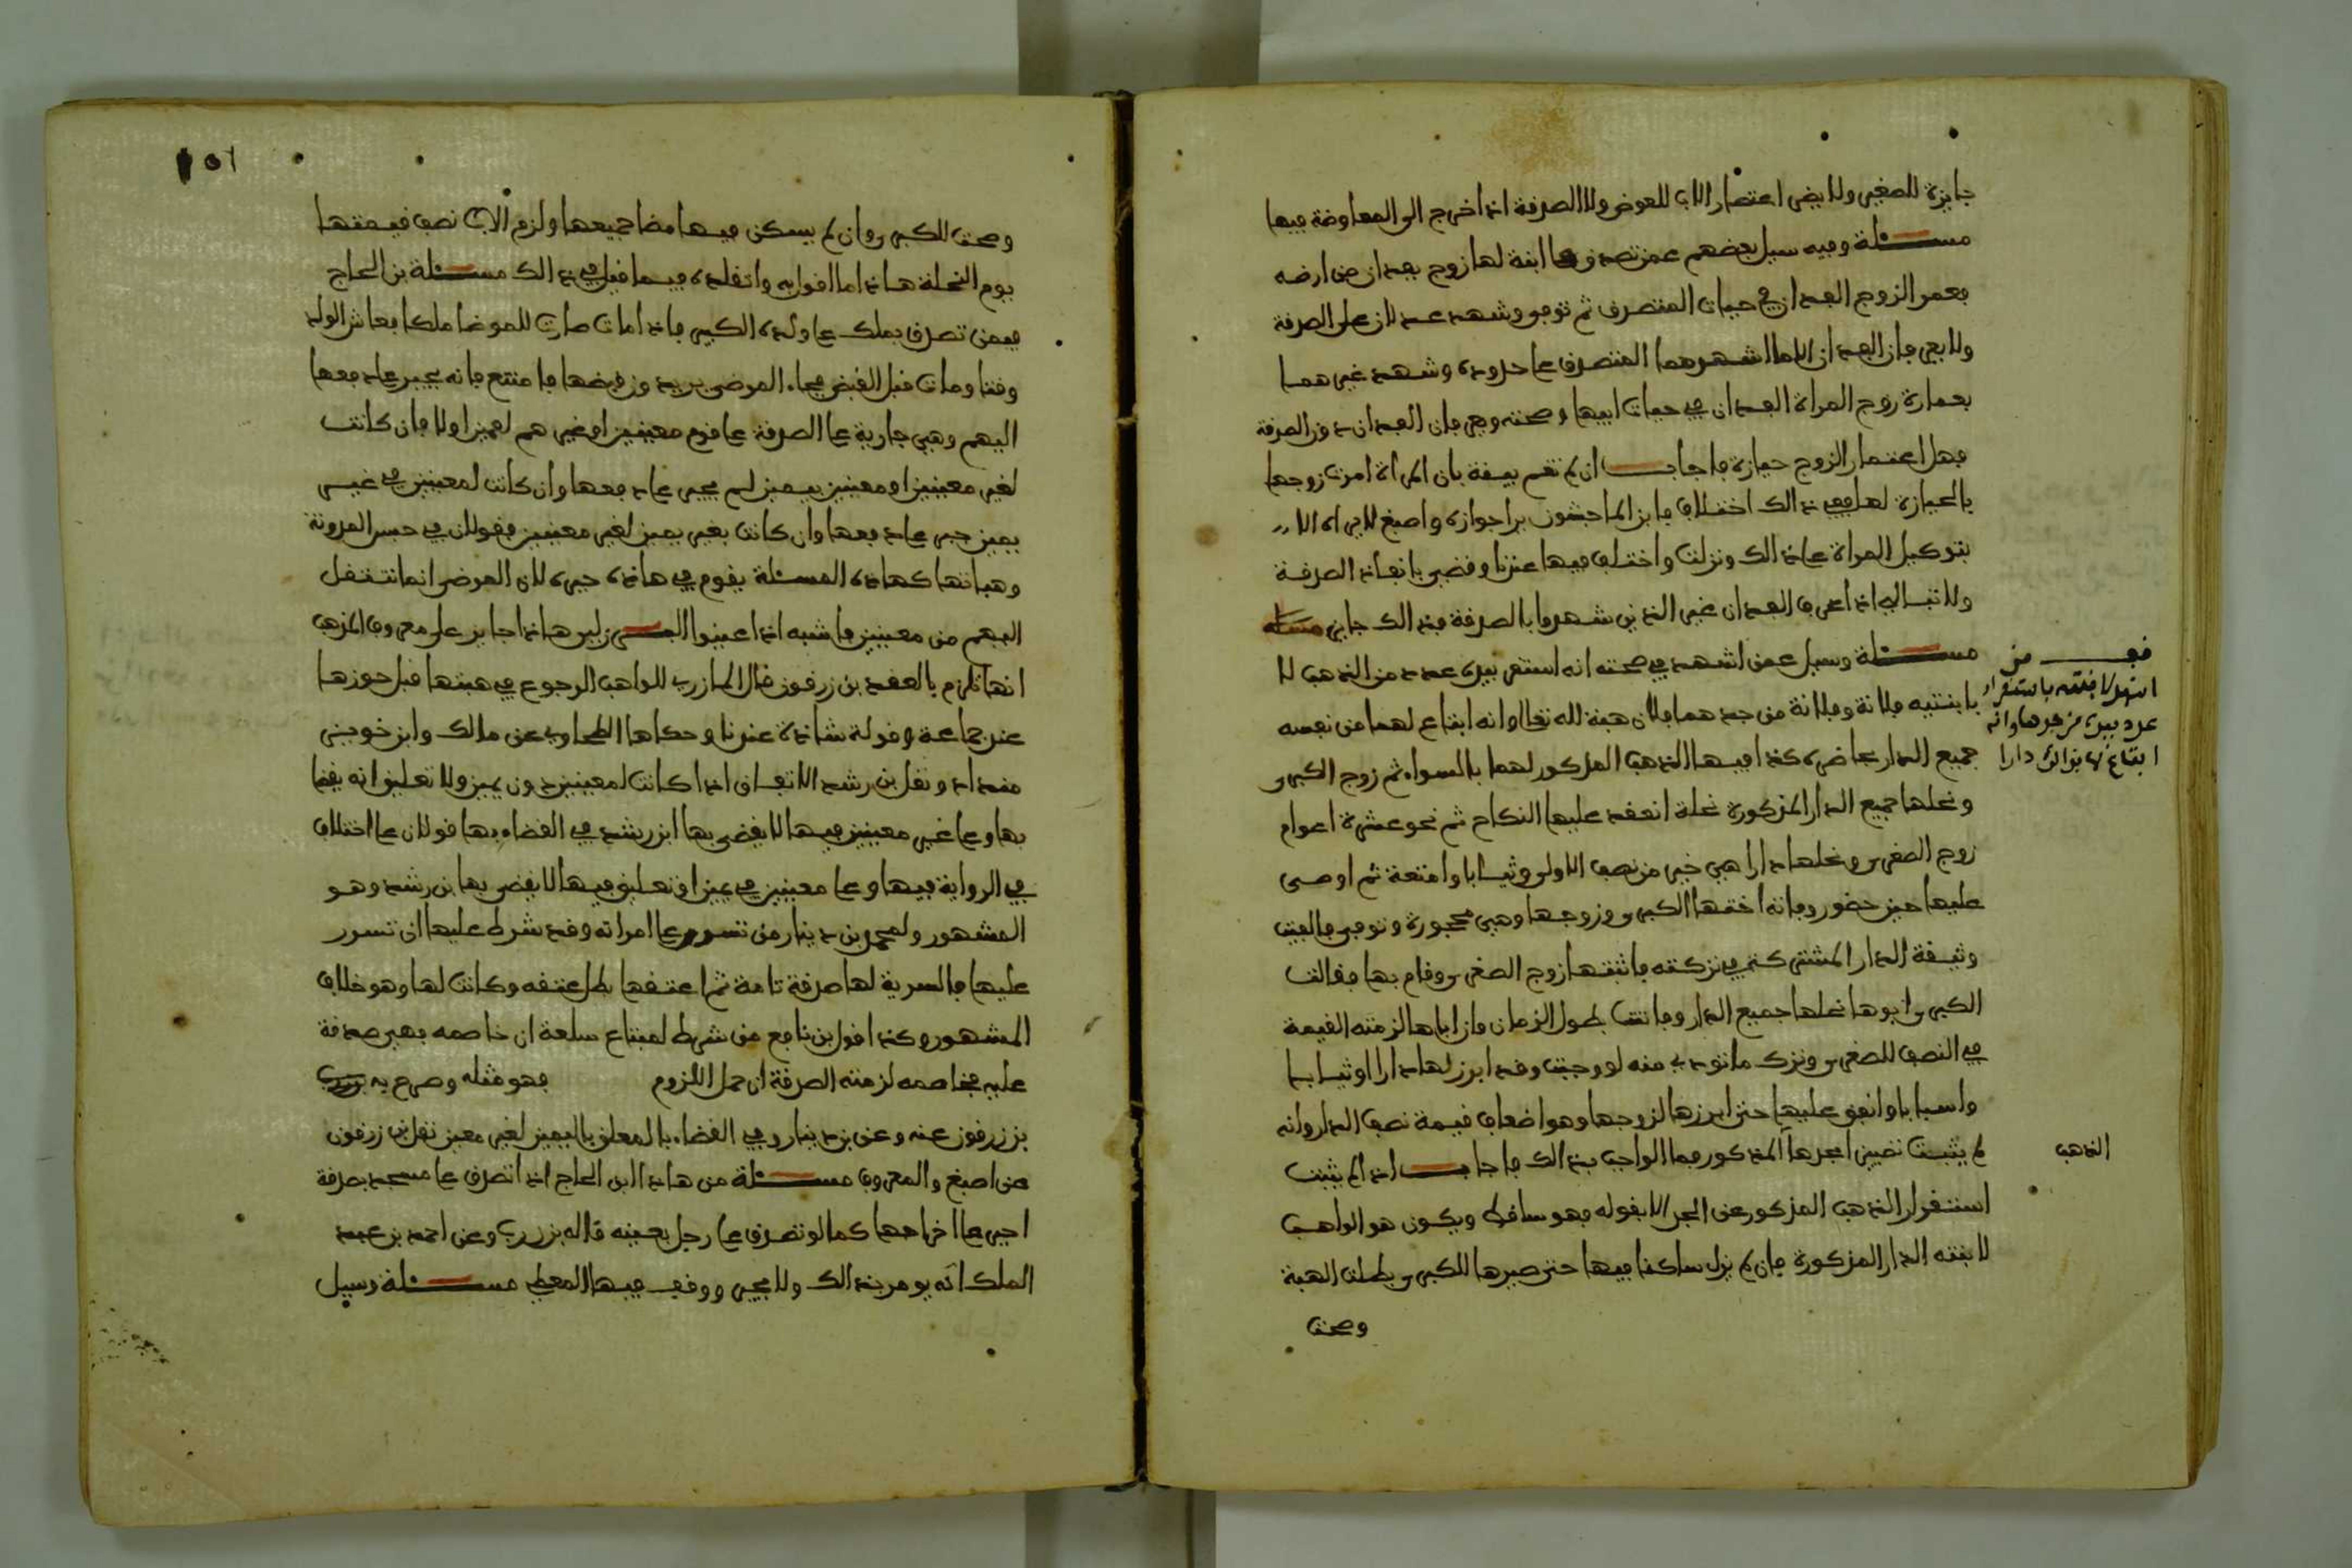 جايزة للصغير ولا يضر اعتصار الاب للعوض ولا الصدقة اذا خرج الى المعاوضة فيها
مسئلة وفيه سيل بعضهم عمن تصدق على ابنة لها زوج بفدان من ارضه
فعمر الزوج الفدان في حيات المتصدق ثم توفي وشهد عدلان على الصدقة
ولا يعرفان الفدان الا ما اشهدهما المتصدق على حدوده وشهد غيرهما
بعمارة زوج المراة الفدان في حيات ابيها وصحته ويعرفان الفدان دون الصدقة
فهل اعتمار الزوج حيازة فاجاب ان لم تقم بينة بان المراة امرت زوجها
بالحيازة لها ففي ذالك اختلاف فابن الماجشون يرا جوازه واصبغ لا يراه الا
بتوكيل المراة على ذالك ونزلت واختلف فيها عندنا وقضى بانفاذ الصدقة
ولا تبالي اذا عرف الفدان غير الذين شهدوا بالصدقة فذالك جايز مسئلة
مسئلة وسيل عمن اشهد في صحته انه استقر بيده عدد من الذهب لا
بابنتيه فلانة وفلانة من جدهما فلان هبة لله تعالى وانه ابتاع لهما من نفسه
جميع الدار بحاضرة كذا فيها الذهب المذكور لهما بالسواء ثم زوج الكبرى
ونحلها جميع الدار المذكورة نحلة انعقد عليها النكاح ثم نحو عشرة اعوام
زوج الصغرى ونحلها دارا هي خير من نصف الاولى وثيابا وامتعة ثم اوصى
عليها حين حضور وفاته اختها الكبرى وزوجها وهي محجورة وتوفي فالفيت
وثيقة الدار المشتركة في تركته فاثبتها زوج الصغرى وقام بها فقالت
الكبرى ابوها نحلها جميع الدار وفاتت بطول الزمان وان اباها لزمته القيمة
في النصف للصغرى وترك ما تودى منه لو وجبت وقد ابرز لها دارا وثيابا
واسبابا وانفق عليها حتى ابرزها لزوجها وهو اضعاف قيمة نصف الدار وانه
لم يثبت نصيرا لجدها المذكور فما الواجب بذالك فاجاب اذا لم يثبت
استقرار الذهب المذكور عن الجد الا بقوله فهو ساقط ويكون هو الواهب
لابنته الدار المذكورة فان لم يزل ساكنا فيها حتى صيرها للكبرى بطلت الهبة
وصحت
فيمن
اشهد لابنته باستقرار
عدد بيده من جدها وانه
ابتاع لها بذالك دارا
الذهب
١٥٦
وصحت للكبرى وان لم يسكن فيها مضا جميعها ولزم الاب نصف قيمتها
يوم النحلة هاذا ما اقول به واتقلده فيما قبلي في ذالك مسئلة بن الحاج
فيمن تصدق بملك على ولده الكبير فاذا مات صارت للمرضا ملكا فعاش الولد
وقتا ومات قبل القبض فجاء المرضى يريدون قبضها فامتنع فانه يجبر على دفعها
اليهم وهي جارية على الصدقة على قوم معينين او غيرهم ليمين اولا فان كانت
لغير معينين او معينين بيمين لم يجبر على دفعها وان كانت لمعينين في غير
يمين جبر على دفعها وان كانت بغير يمين لغير معينين فقولان في حبس المدونة
وهباتها كهاذه المسئلة يقوم في هاذه جبره لان المرضى انما تنتقل
اليهم من معينين فاشبه اذا عينوا ليس هاذا جايز على معروف المذهب
انها تلزم بالعقد بن زرقون قال المازري للواهب الرجوع في هبتها قبل حوزها
عند جماعة وقولة شاذة عندنا وحكاها الطحاوي عن مالك وابن خويز
منداد ونقل بن رشد الاتفاق اذا كانت لمعينين دون يمين ولا تعليق انه يقضا
بها وعلى غير معينين فيها لا يقضى بها ابن رشد في القضاء بها قولان على اختلاف
في الرواية فيها وعلى معينين في يمين او تعليق فيها لا يقضى بها بن رشد وهو
المشهور ولمحمد بن دينار من تسرر على امراته وقد شرط عليها ان تسرر
عليها فالسرية لها صدقة تامة ثم اعتقها بطل عتقه وكانت لها وهو خلاف
المشهور وكذا قول بن نافع من شرط لمبتاع سلعة ان خاصمه فهي صدقة
عليه فخاصمه لزمته الصدقة ان حمل اللزوم فهو مثله وصرح به
بن زرقون عنه وعن بن دينار وفي القضاء بالمعلق باليمين لغير معين نقل بن زرقون
عن اصبغ والمعروف مسئلة من هاذا لابن الحاج اذا تصدق على مسجد بصدقة
اجبر على اخراجها كما لو تصدق على رجل بعينه قاله بن زرب وعن احمد بن عبد
الملك انه يومر بذالك ولا يجبر ووقف فيها المعطي مسئلة وسيل